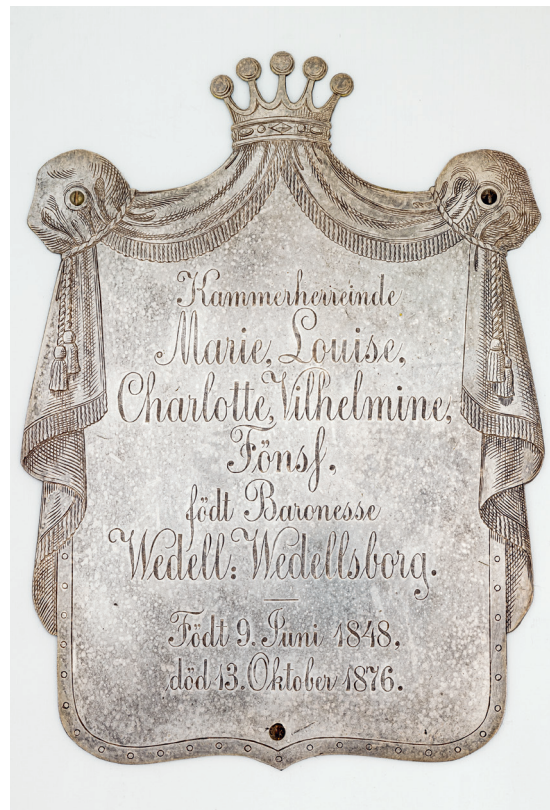 Kammerherreinde
Marie, Louise,
Charlotte, Vilhelmine,
Fönss,
födt Baronesse
Wedell: Wedellsborg.
Födt 9. Juni 1848,
död 13. Oktober 1876.